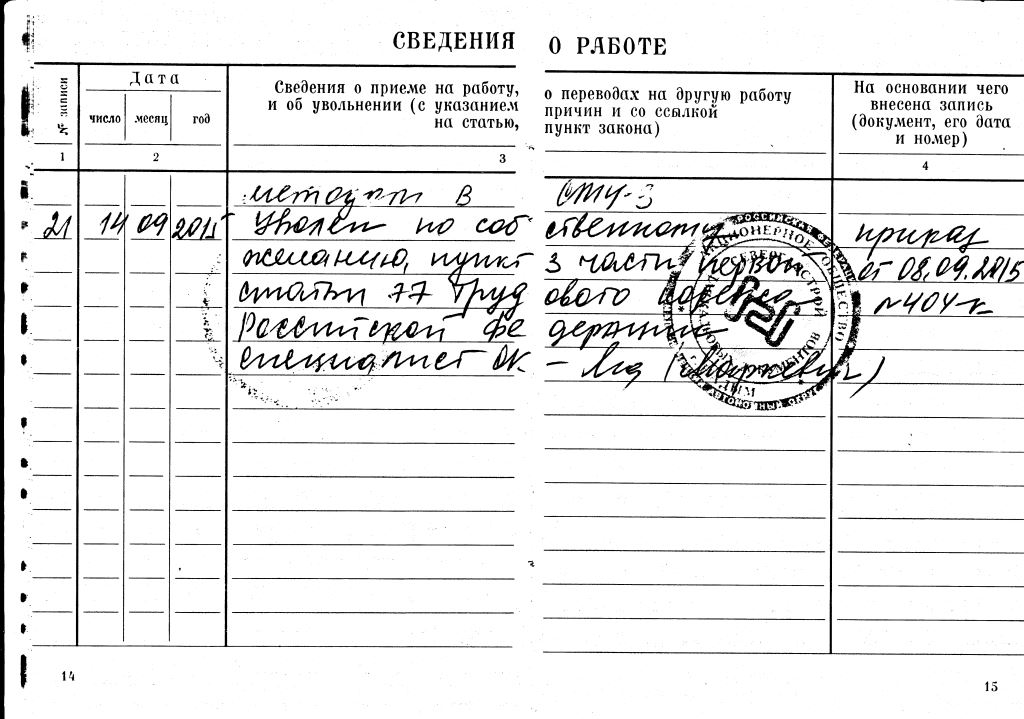 СВЕДЕНИЯ О РАБОТЕ
№ записи
Дата
число месяц год
Сведения о приеме на работу, о переводах на другую работу
и об увольнении (с указанием причин и со ссылкой
на статью, пункт закона)
На основании чего
внесена запись
(документ, его дата
и номер)
1 2 3 4
в СМУ-3
21 14 09 2015 Уволен по собственному приказ
желанию, пункт 3 части первой от 08.09.2015
статьи 77 Трудового кодекса №404-к
Российской Федерации
специалист ОК -
РОССИЙСКАЯ ФЕДЕРАЦИЯ
АКЦИОНЕРНОЕ ОБЩЕСТВО
АВТОНОМНЫЙ ОКРУГ
14 15